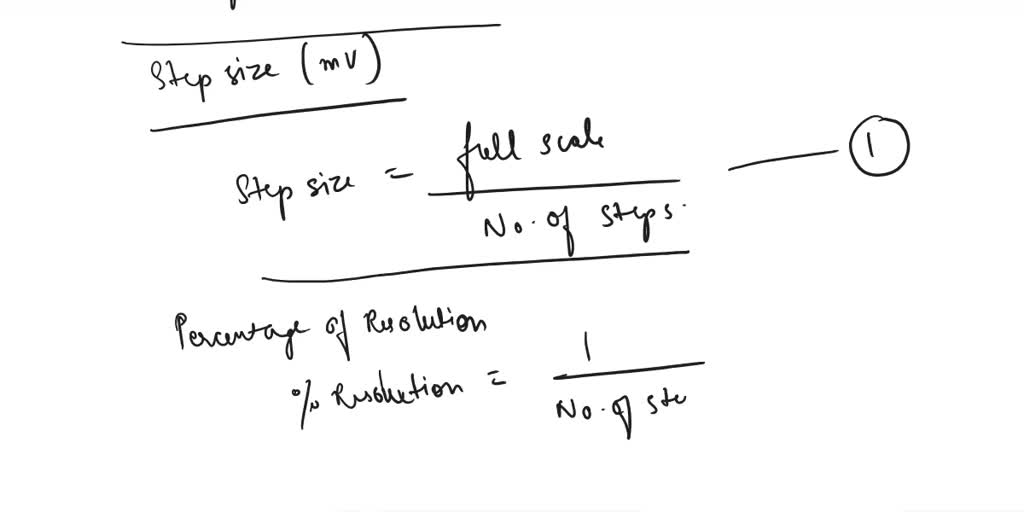 Step size (mV)
Step size = full scale / No. of steps. — 1
Percentage of Resolution
% Resolution = 1 / No. of ste